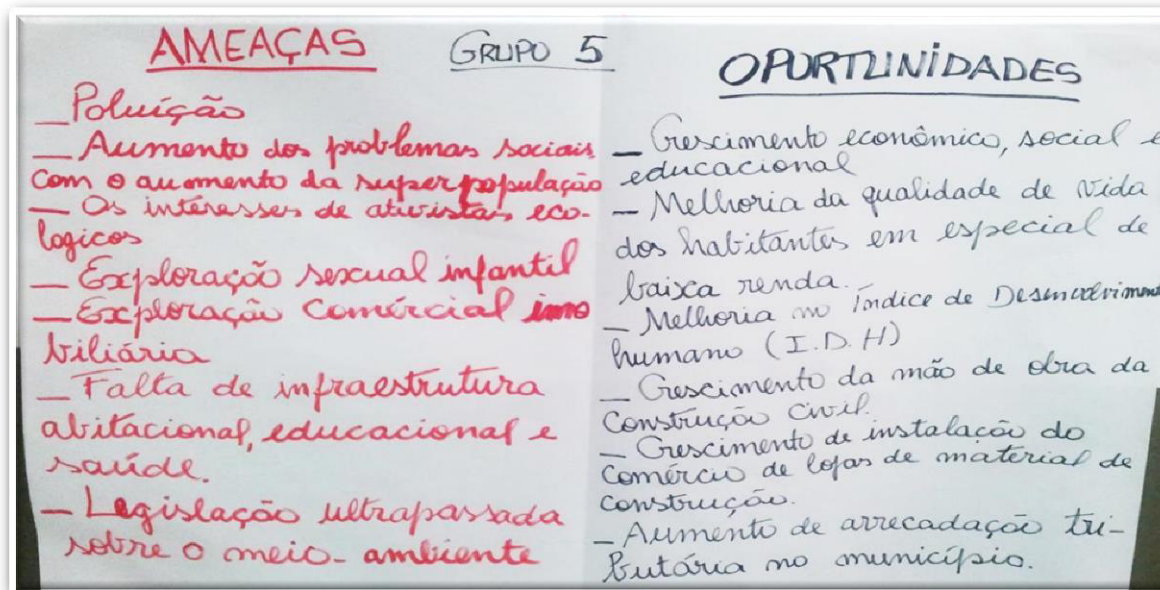 AMEAÇAS
_ Poluição
_ Aumento dos problemas sociais
com o aumento da superpopulação
_ Os interesses de ativistas eco-
logicos
_ Exploração sexual infantil
_ Exploração Comércial imo
biliária
_ Falta de infraestrutura
abitacional, educacional e
saúde.
_ Legislação ultrapassada
sobre o meio-ambiente
GRUPO 5
OPORTUNIDADES
_ Crescimento econômico, social e
educacional
_ Melhoria da qualidade de vida
dos habitantes em especial de
baixa renda.
_ Melhoria no Índice de Desinvolviment
humano (I.D.H)
_ Crescimento da mão de obra da
Construção Civil.
_ Crescimento de instalação do
Comércio de lojas de material de
construção.
_ Aumento de arrecadação tri-
butária no município.